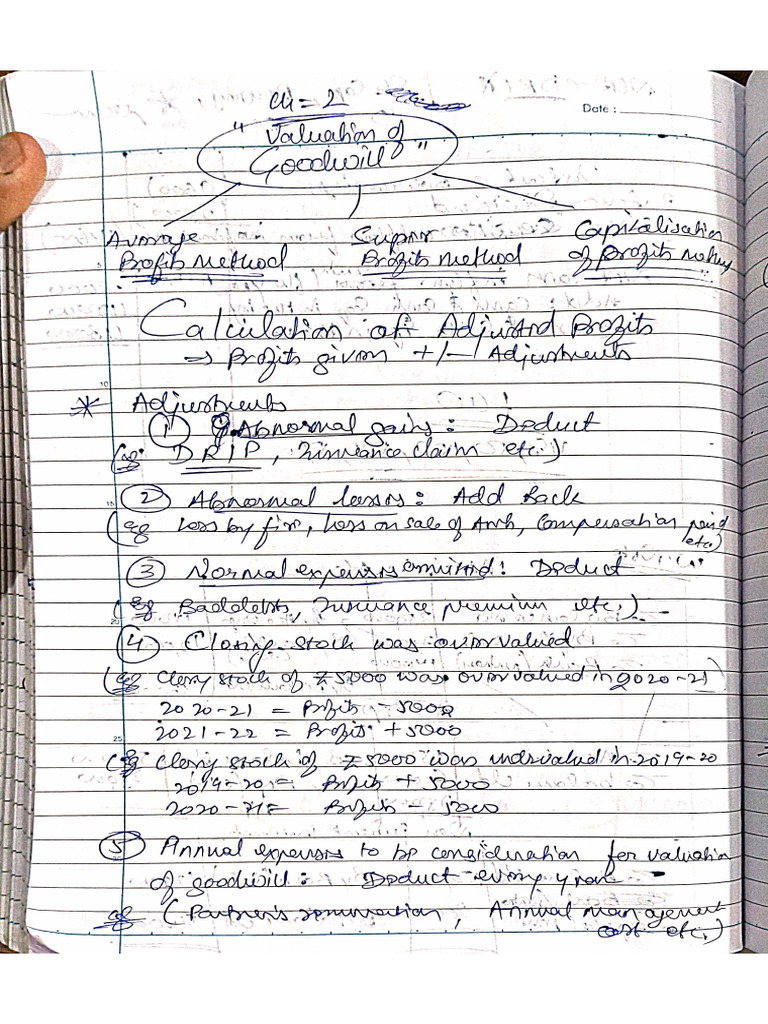 Ch = 2
Date :
"Valuation of
Goodwill"
Average Super Capitalisation
Profits method Profits method of Profits method
Calculation of Adjusted Profits
⇒ Profits given +/- Adjustments
* Adjustments
① Abnormal gains : Deduct
(eg. D R I P, Insurance claim etc.)
② Abnormal losses : Add Back
(eg Loss by fire, Loss on sale of Amh, Compensation paid
etc.)
③ Normal expenses ommitted : Deduct
(eg Baddebts, Insurance premium etc.)
④ Closing stock was overvalued
(eg Closing stock of ₹5000 was overvalued in 2020-21)
2020-21 = Profits - 5000
2021-22 = Profits + 5000
(eg Closing stock of ₹5000 was undervalued in 2019-20
2019-20 = Profits + 5000
2020-21 = Profits - 5000
⑤ Annual expenses to be consideration for valuation
of goodwill : Deduct every year
eg (Partner's remuneration, Annual management
cost etc.)